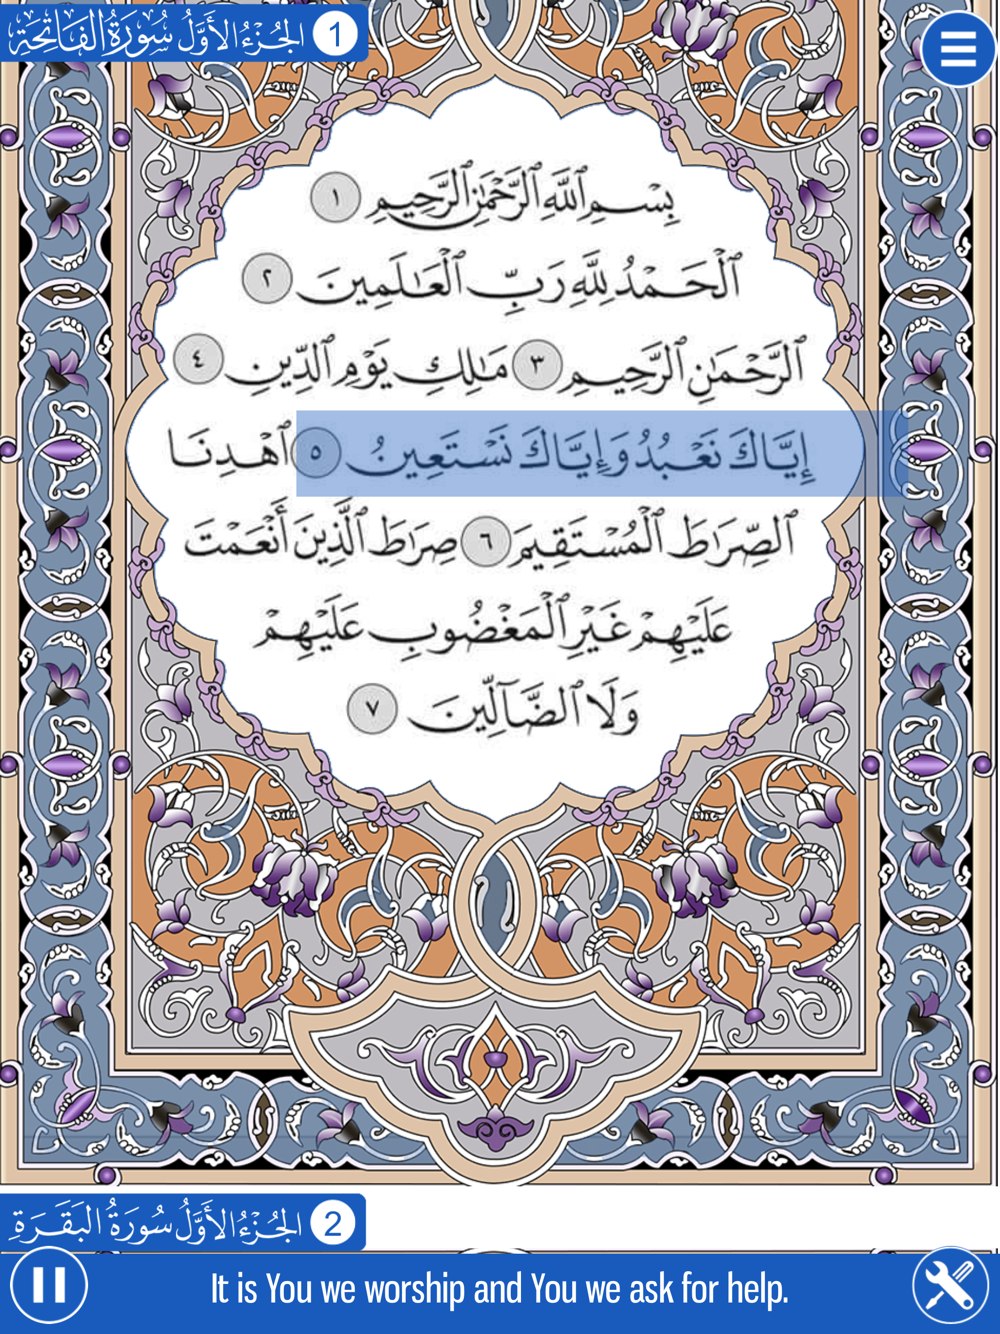 سُورَةُ الفَاتِحَةِ الجُزْءُ الأَوَّلُ 1
بِسْمِ ٱللَّهِ ٱلرَّحْمَٰنِ ٱلرَّحِيمِ ١
ٱلْحَمْدُ لِلَّهِ رَبِّ ٱلْعَٰلَمِينَ ٢
ٱلرَّحْمَٰنِ ٱلرَّحِيمِ ٣ مَٰلِكِ يَوْمِ ٱلدِّينِ ٤
إِيَّاكَ نَعْبُدُ وَإِيَّاكَ نَسْتَعِينُ ٥ ٱهْدِنَا
ٱلصِّرَٰطَ ٱلْمُسْتَقِيمَ ٦ صِرَٰطَ ٱلَّذِينَ أَنْعَمْتَ
عَلَيْهِمْ غَيْرِ ٱلْمَغْضُوبِ عَلَيْهِمْ
وَلَا ٱلضَّآلِّينَ ٧
سُورَةُ البَقَرَةِ الجُزْءُ الأَوَّلُ 2
It is You we worship and You we ask for help.